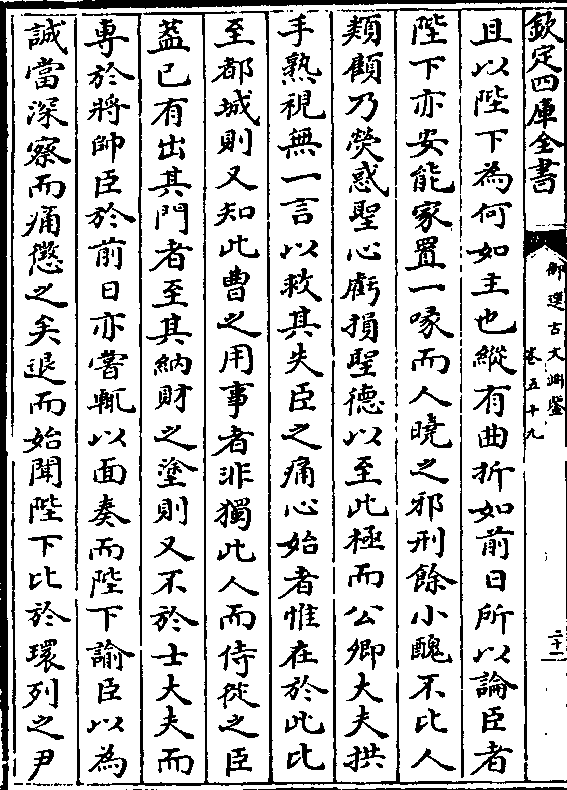 欽定四庫全書
御選古文淵鑒
卷五十九
二十一
且以陛下為何如主也縱有曲折如前日所以諭臣者
陛下亦安能家置一喙而人曉之邪刑餘小醜不比人
類顧乃熒惑聖心虧損聖德以至此極而公卿大夫拱
手熟視無一言以救其失臣之痛心始者惟在於此比
至都城則又知此曹之用事者非獨此人而侍從之臣
葢已有出其門者至其納財之塗則又不於士大夫而
專於將帥臣於前日亦嘗輒以面奏而陛下諭臣以為
誠當深察而痛懲之矣退而始聞陛下比於環列之尹